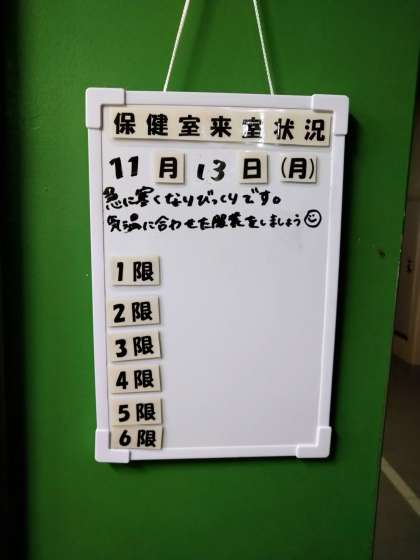 保健室来室状況
11月13日(月)
急に寒くなりびっくりです。
気温に合わせた服装をしましょう
1限
2限
3限
4限
5限
6限